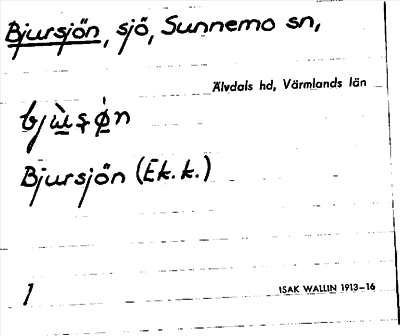 Bjursjön, sjö, Sunnemo sn,
Älvdals hd, Värmlands län
Bjursjön (Ek. k.)
1
ISAK WALLIN 1913–16